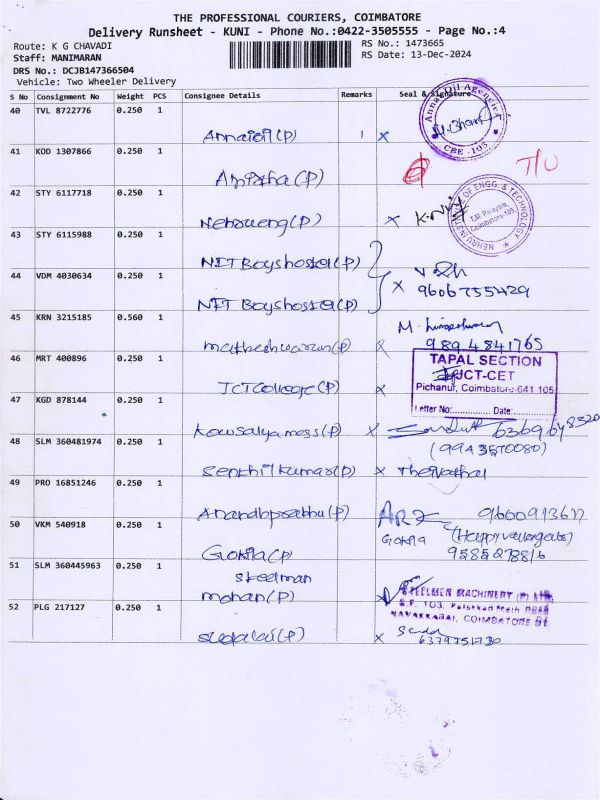 THE PROFESSIONAL COURIERS, COIMBATORE
Delivery Runsheet - KUNI - Phone No.:0422-3505555 - Page No.:4
Route: K G CHAVADI
RS No.: 1473665
Staff: MANIMARAN
RS Date: 13-Dec-2024
DRS No.: DCJB147366504
Vehicle: Two Wheeler Delivery
S No Consignment No Weight PCS Consignee Details Remarks Seal & Signature
40 TVL 8722776 0.250 1
Annai Oil Agencies
CBE - 105
Annaioil(P)
41 KOD 1307866 0.250 1
T/U
(P)
42 STY 6117718 0.250 1
OF ENGG. & TECHNOLOGY
T.M. Palayam,
Coimbatore-105.
NEHRU INSTITUTE
Nehrueng(P) x
43 STY 6115988 0.250 1
NIT Boyshostel(P)
44 VDM 4030634 0.250 1
x 9606755429
NIT Boyshostel(P)
45 KRN 3215185 0.560 1
M.
9894841765
(P) x
46 MRT 400896 0.250 1
TAPAL SECTION
JCT-CET
Pichanur, Coimbatore-641 105
JCTCollege(P) x
47 KGD 878144 0.250 1
Letter No:............ Date:............
Kowsalyamess(P) x 6369648320
48 SLM 360481974 0.250 1
(9943570080)
Senthilkumar(P) x
49 PRO 16851246 0.250 1
Anandhprabhu(P)
50 VKM 540918 0.250 1
Gokila
Gokila(P)
51 SLM 360445963 0.250 1
Steelman
STEELMEN MACHINERY (P) Ltd.
mohan(P)
S.F. 103, Palakkad Main Road
52 PLG 217127 0.250 1
NAVAKKARAI, COIMBATORE
(P) x 6379751730